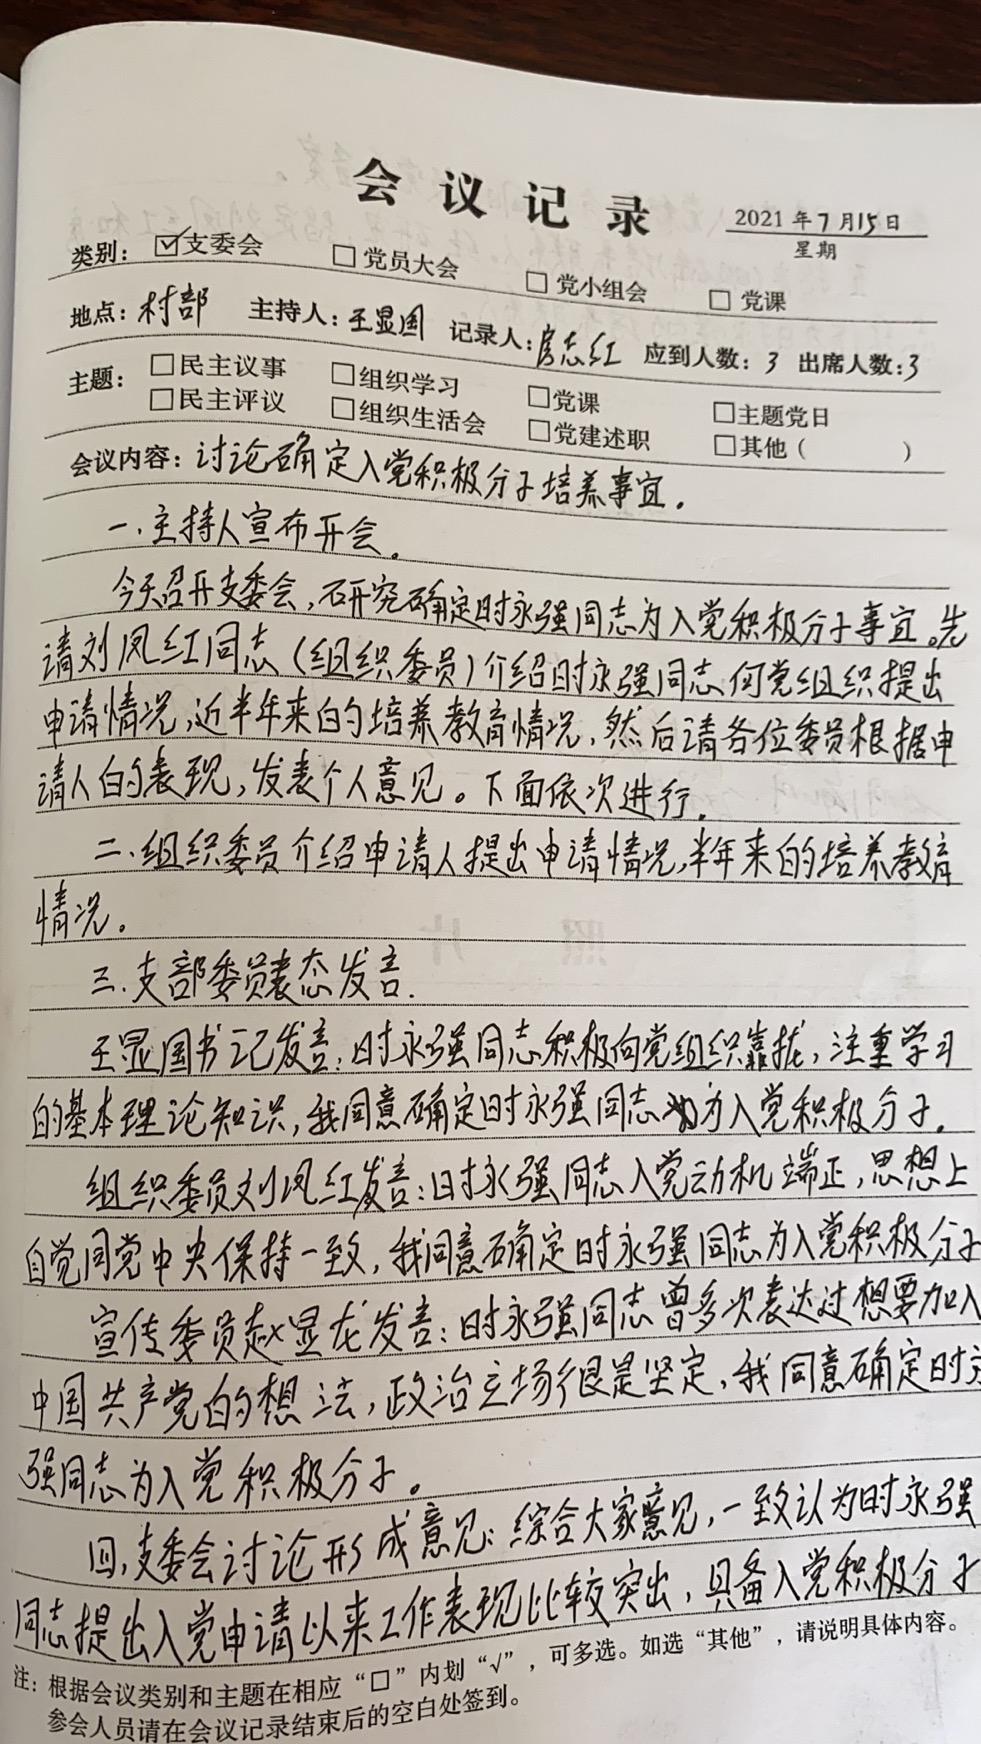 会议记录
2021年7月15日
星期
类别：☑支委会 □党员大会 □党小组会 □党课
地点：村部 主持人：王显国 记录人：房志红 应到人数：3 出席人数：3
主题：□民主议事 □组织学习 □党课 □主题党日
□民主评议 □组织生活会 □党建述职 □其他（ ）
会议内容：讨论确定入党积极分子培养事宜。
一、主持人宣布开会。
今天召开支委会，研究确定时永强同志为入党积极分子事宜。先
请刘凤红同志（组织委员）介绍时永强同志向党组织提出
申请情况，近半年来的培养教育情况，然后请各位委员根据申
请人的表现，发表个人意见。下面依次进行。
二、组织委员介绍申请人提出申请情况，半年来的培养教育
情况。
三、支部委员表态发言.
王显国书记发言：时永强同志积极向党组织靠拢，注重学习
的基本理论知识，我同意确定时永强同志为入党积极分子。
组织委员刘凤红发言：时永强同志入党动机端正，思想上
自觉同党中央保持一致，我同意确定时永强同志为入党积极分子
宣传委员赵显龙发言：时永强同志曾多次表达过想要加入
中国共产党的想法，政治立场很是坚定，我同意确定时永
强同志为入党积极分子。
四、支委会讨论形成意见：综合大家意见，一致认为时永强
同志提出入党申请以来工作表现比较突出，具备入党积极分子
注：根据会议类别和主题在相应“□”内划“√”，可多选。如选“其他”，请说明具体内容。
参会人员请在会议记录结束后的空白处签到。